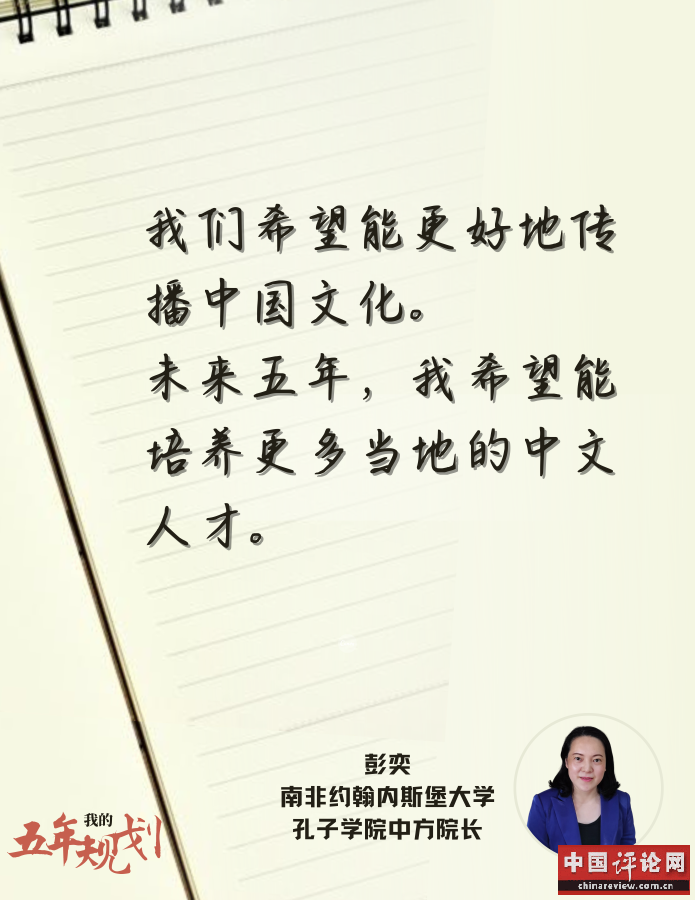 我们希望能更好地传
播中国文化。
未来五年，我希望能
培养更多当地的中文
人才。
彭奕
南非约翰内斯堡大学
孔子学院中方院长
我的
五年规划
中国评论网
chinareview.com.cn